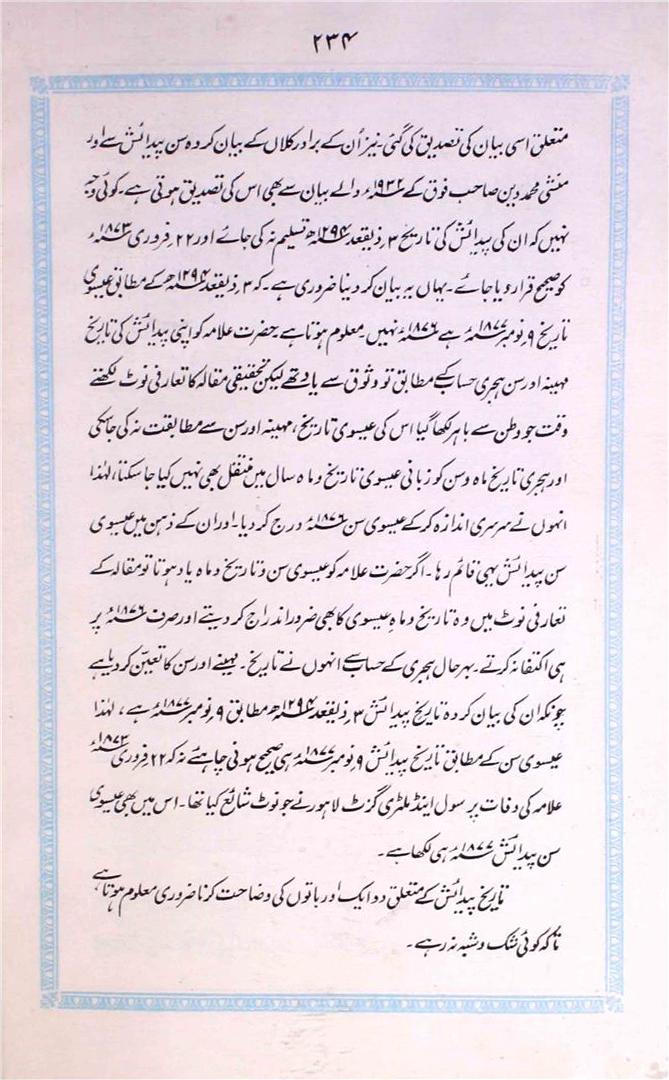 ۲۳۴
متعلق اسی بیان کی تصدیق کی گئی۔ نیز اُن کے برادر کلاں کے بیان کردہ سن پیدائش سے اور
منشی محمد دین صاحب فوق کے ۱۹۳۲ء والے بیان سے بھی اس کی تصدیق ہوتی ہے۔ کوئی وجہ
نہیں کہ ان کی پیدائش کی تاریخ ۳؍ ذیقعد ۱۲۹۴ھ تسلیم نہ کی جائے اور ۲۲؍ فروری ۱۸۷۳ء
کو صحیح قرار دیا جائے۔ یہاں یہ بیان کر دینا ضروری ہے۔ کہ ۳؍ ذیقعد ۱۲۹۴ھ کے مطابق عیسوی
تاریخ ۹؍ نومبر ۱۸۷۷ء ہے ۱۸۷۶ء نہیں۔ معلوم ہوتا ہے حضرت علامہ کو اپنی پیدائش کی تاریخ
مہینہ اور سن ہجری حساب کے مطابق تو وثوق سے یاد تھے لیکن تحقیقی مقالہ کا تعارفی نوٹ لکھتے
وقت جو وطن سے باہر لکھا گیا اس کی عیسوی تاریخ، مہینہ اور سن سے مطابقت نہ کی جا سکی
اور ہجری تاریخ ماہ و سن کو زبانی عیسوی تاریخ و ماہ سال میں منتقل بھی نہیں کیا جا سکتا، لہٰذا
انہوں نے سرسری اندازہ کر کے عیسوی سن ۱۸۷۶ء درج کر دیا۔ اور ان کے ذہن میں عیسوی
سن پیدائش یہی قائم رہا۔ اگر حضرت علامہ کو عیسوی سن و تاریخ و ماہ یاد ہوتا تو مقالہ کے
تعارفی نوٹ میں وہ تاریخ و ماہِ عیسوی کا بھی ضرور اندراج کر دیتے اور صرف ۱۸۷۶ء پر
ہی اکتفا نہ کرتے۔ بہرحال ہجری کے حساب سے انہوں نے تاریخ۔ مہینے اور سن کا تعیّن کر دیا ہے
چونکہ ان کی بیان کردہ تاریخ پیدائش ۳؍ ذیقعد ۱۲۹۴ھ مطابق ۹؍ نومبر ۱۸۷۷ء ہے، لہٰذا
عیسوی سن کے مطابق تاریخ پیدائش ۹؍ نومبر ۱۸۷۷ء ہی صحیح ہونی چاہئے نہ کہ ۲۲؍ فروری ۱۸۷۳ء
علامہ کی وفات پر سول اینڈ ملٹری گزٹ لاہور نے جو نوٹ شائع کیا تھا۔ اس میں بھی عیسوی
سن پیدائش ۱۸۷۷ء ہی لکھا ہے۔
تاریخ پیدائش کے متعلق دو ایک اور باتوں کی وضاحت کرنا ضروری معلوم ہوتا ہے
تاکہ کوئی شک و شبہ نہ رہے۔